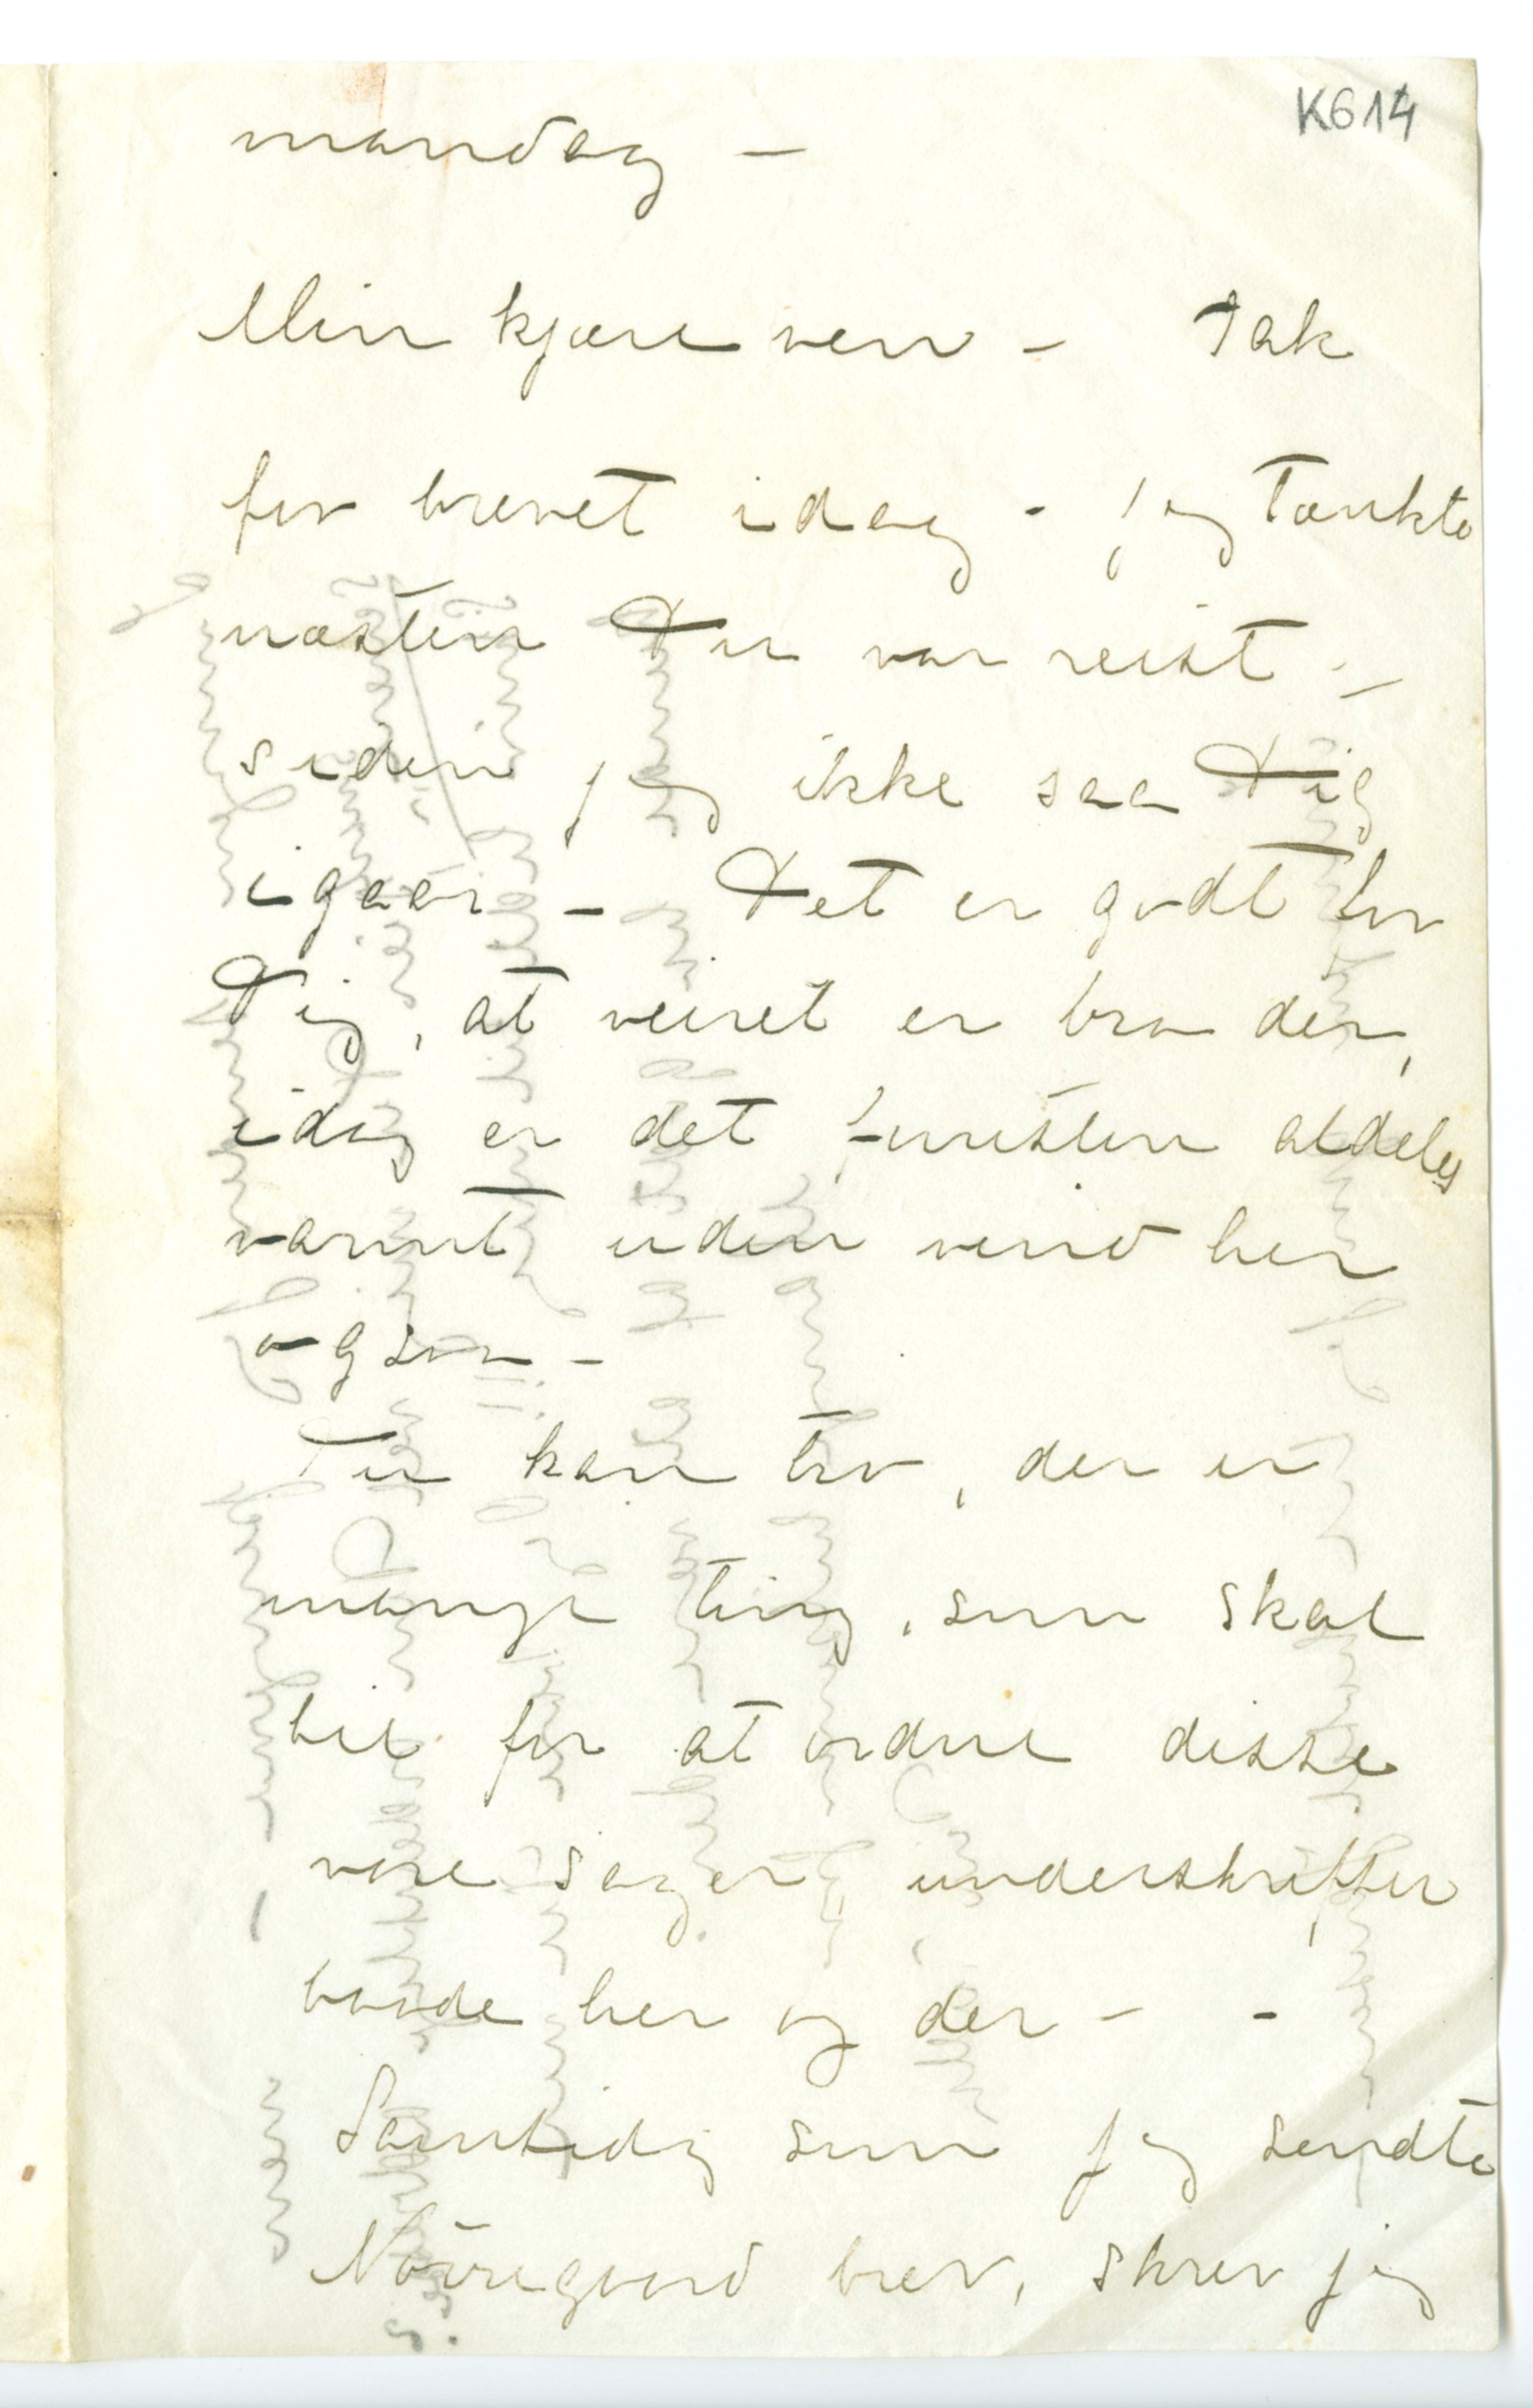 K614
mandag –
Min kjære ven – Tak
for brevet idag – jeg tænkte
næsten Du var reist –
siden jeg ikke saa Dig
igaar – Det er godt for
Dig, at veiret er bra der,
idag er det forresten aldeles
varmt uden vind her
ogsaa –
Du kan tro, der er
mange ting, som skal
til for at ordne disse
vore sager, underskrifter
baade her og der – –
Samtidig som jeg sendte
Nörregaard brev, skrev jeg